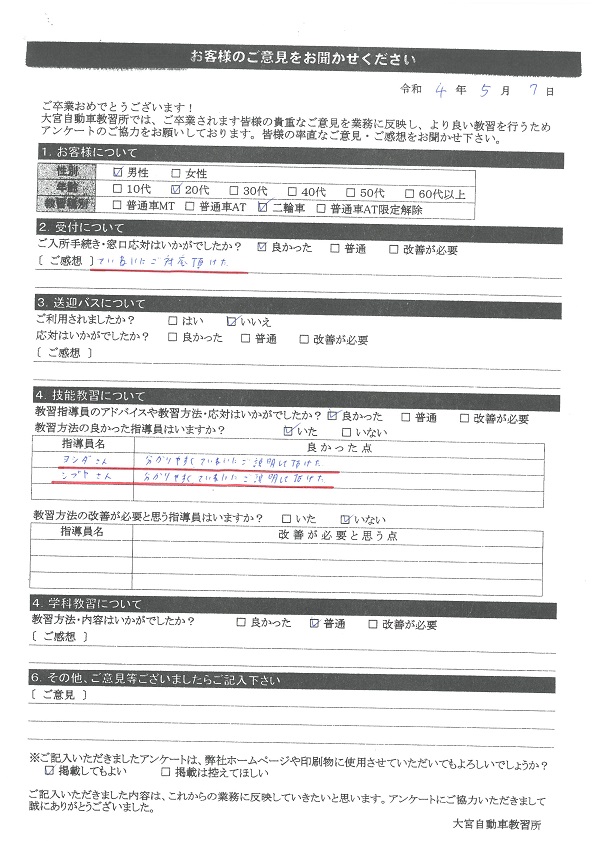 お客様のご意見をお聞かせください
令和 4 年 5 月 7 日
ご卒業おめでとうございます！
大宮自動車教習所では、ご卒業されます皆様の貴重なご意見を業務に反映し、より良い教習を行うため
アンケートのご協力をお願いしております。皆様の率直なご意見・ご感想をお聞かせ下さい。
1. お客様について
性別 ☑男性 □女性
年齢 □10代 ☑20代 □30代 □40代 □50代 □60代以上
教習種別 □普通車MT □普通車AT ☑二輪車 □普通車AT限定解除
2. 受付について
ご入所手続き・窓口応対はいかがでしたか？ ☑良かった □普通 □改善が必要
〔 ご感想 〕ていねいにご対応頂けた
3. 送迎バスについて
ご利用されましたか？ □はい ☑いいえ
応対はいかがでしたか？ □良かった □普通 □改善が必要
〔 ご感想 〕
4. 技能教習について
教習指導員のアドバイスや教習方法・応対はいかがでしたか？ ☑良かった □普通 □改善が必要
教習方法の良かった指導員はいますか？ ☑いた □いない
指導員名 良かった点
ヨシダさん 分かりやすくていねいにご説明して頂けた
シブヤさん 分かりやすくていねいにご説明して頂けた
教習方法の改善が必要と思う指導員はいますか？ □いた ☑いない
指導員名 改善が必要と思う点
4. 学科教習について
教習方法・内容はいかがでしたか？ □良かった ☑普通 □改善が必要
〔 ご感想 〕
6. その他、ご意見等ございましたらご記入下さい
〔 ご意見 〕
※ご記入いただきましたアンケートは、弊社ホームページや印刷物に使用させていただいてもよろしいでしょうか？
☑掲載してもよい □掲載は控えてほしい
ご記入いただきました内容は、これからの業務に反映していきたいと思います。アンケートにご協力いただきまして
誠にありがとうございました。
大宮自動車教習所